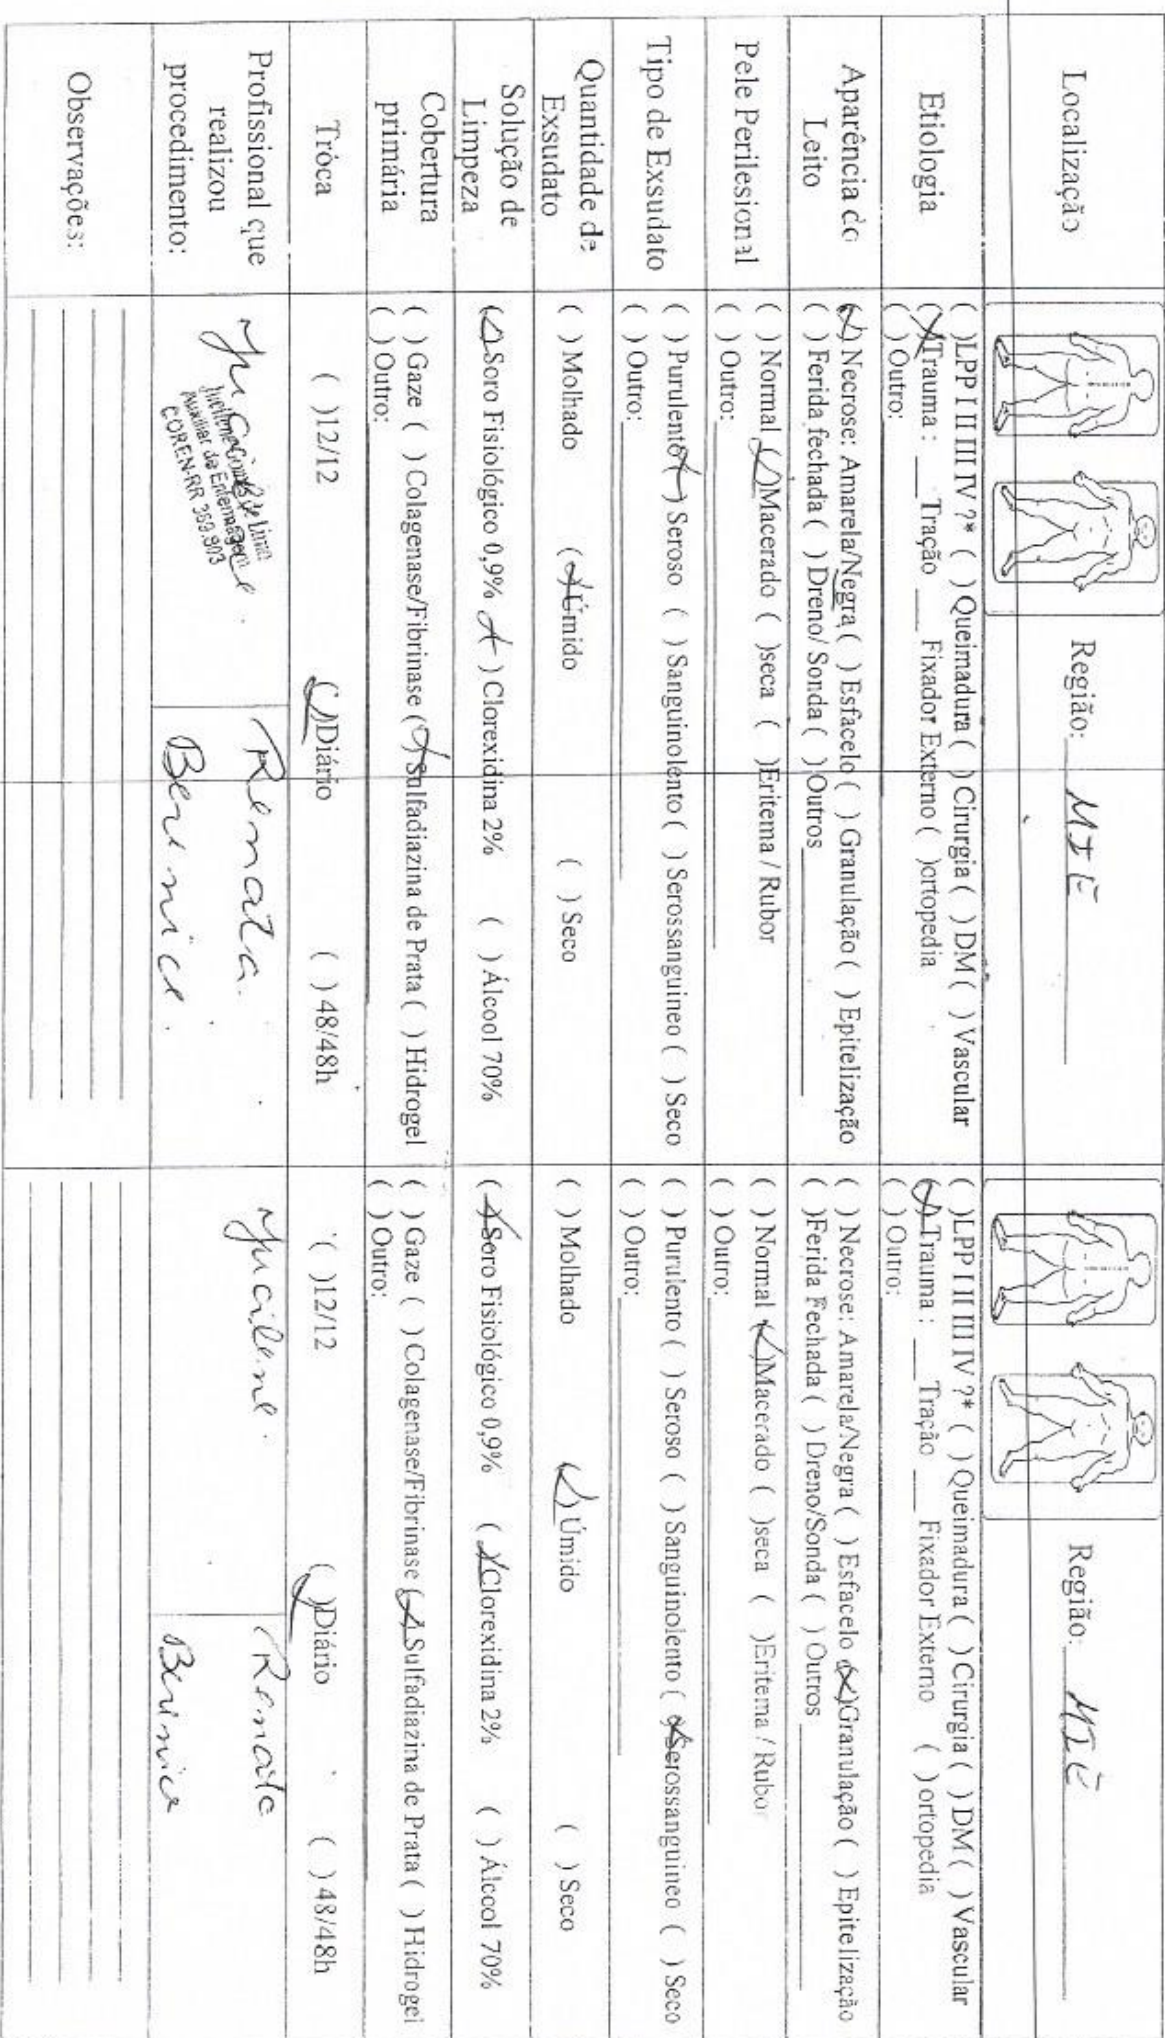 Localização
Região: MIE
Região: MIE
Etiologia
( )LPP I II III IV ?* ( ) Queimadura ( ) Cirurgia ( ) DM ( ) Vascular
(X)Trauma : ___Tração ___ Fixador Externo ( )ortopedia
( ) Outro:
( )LPP I II III IV ?* ( ) Queimadura ( ) Cirurgia ( ) DM ( ) Vascular
(X)Trauma : ___Tração ___ Fixador Externo ( )ortopedia
( ) Outro:
Aparência do
Leito
(X) Necrose: Amarela/Negra ( ) Esfacelo ( ) Granulação ( ) Epitelização
( ) Ferida fechada ( ) Dreno/ Sonda ( ) Outros
( ) Necrose: Amarela/Negra ( ) Esfacelo (X)Granulação ( ) Epitelização
( )Ferida Fechada ( ) Dreno/Sonda ( ) Outros
Pele Perilesional
( ) Normal (X)Macerado ( )seca ( )Eritema / Rubor
( ) Outro:
( ) Normal (X)Macerado ( )seca ( )Eritema / Rubor
( ) Outro:
Tipo de Exsudato
( ) Purulento (X) Seroso ( ) Sanguinolento ( ) Serossanguineo ( ) Seco
( ) Outro:
( ) Purulento ( ) Seroso ( ) Sanguinolento (X)Serossanguineo ( ) Seco
( ) Outro:
Quantidade de
Exsudato
( ) Molhado (X)Úmido ( ) Seco
( ) Molhado (X)Úmido ( ) Seco
Solução de
Limpeza
(X)Soro Fisiológico 0,9% (X) Clorexidina 2% ( ) Álcool 70%
(X)Soro Fisiológico 0,9% (X)Clorexidina 2% ( ) Álcool 70%
Cobertura
primária
( ) Gaze ( ) Colagenase/Fibrinase (X)Sulfadiazina de Prata ( ) Hidrogel
( ) Outro:
( ) Gaze ( ) Colagenase/Fibrinase (X)Sulfadiazina de Prata ( ) Hidrogel
( ) Outro:
Tróca
( )12/12 (X)Diário ( ) 48/48h
( )12/12 (X)Diário ( ) 48/48h
Profissional que
realizou
procedimento:
Auxiliar de Enfermagem
COREN-RR 369.903
Renata.
Berenice.
Jucilene.
Renata
Berenice
Observações: